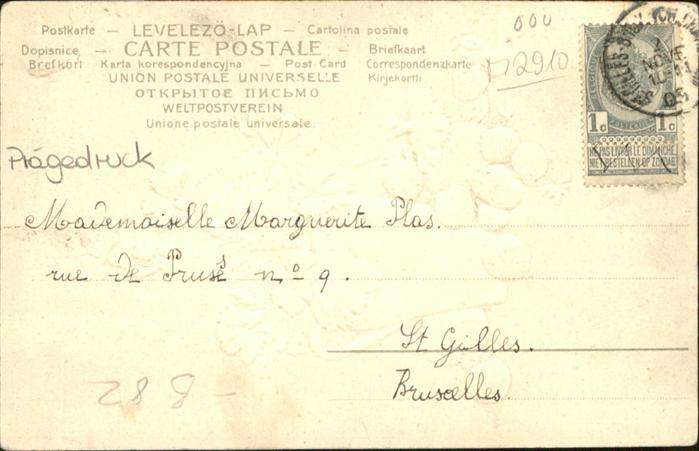 Postkarte – LEVELEZÖ-LAP – Cartolina postale
Dopisnice – CARTE POSTALE – Briefkaart
Brefkort Karta korespondencyjna – Post Card Correspondenzkarte
UNION POSTALE UNIVERSELLE Kirjekortti
ОТКРЫТОЕ ПИСЬМО
WELTPOSTVEREIN
Unione postale universale.
000
12910
Prägedruck
1c 1c
NE PAS LIVRER LE DIMANCHE
NIET BESTELLEN OP ZONDAG
Mademoiselle Marguerite Plas.
rue de no 9.
St Gilles.
Bruxelles.
288 –